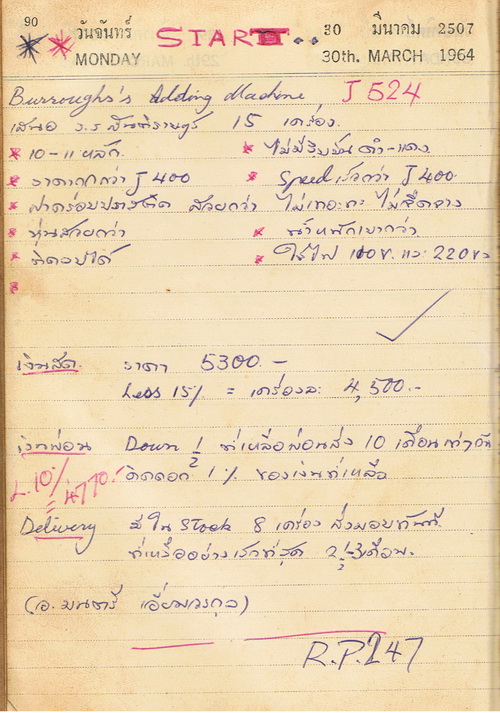 90 วันจันทร์ START.. 30 มีนาคม 2507
MONDAY 30th. MARCH 1964
Burroughs's Adding Machine J 524
เสนอ ร.ร สันติราษฎร์ 15 เครื่อง.
* 10-11 หลัก. * ไม่มีริบบิ้น ดำ-แดง
* ราคาถูกกว่า J 400 * Speed เร็วกว่า J 400.
* สวยกว่า ไม่เทอะทะ
* หุ่นสวยกว่า * น้ำหนักเบากว่า
* * ใช้ไฟ 110V. และ 220V
*
เงินสด. ราคา 5300.-
Less 15% = เครื่องละ 4,500.-
เงินผ่อน Down 1/2 ที่เหลือผ่อนส่ง 10 เดือนเท่าๆกัน
L.10% 4770.- คิดดอก 1% ของเงินที่เหลือ
Delivery มีใน Stock 8 เครื่อง ส่งมอบทันที
ที่เหลืออย่างเร็วที่สุด 2-3 เดือน.
(อ. มนตรี เอี่ยมวรกุล)
R.P.247